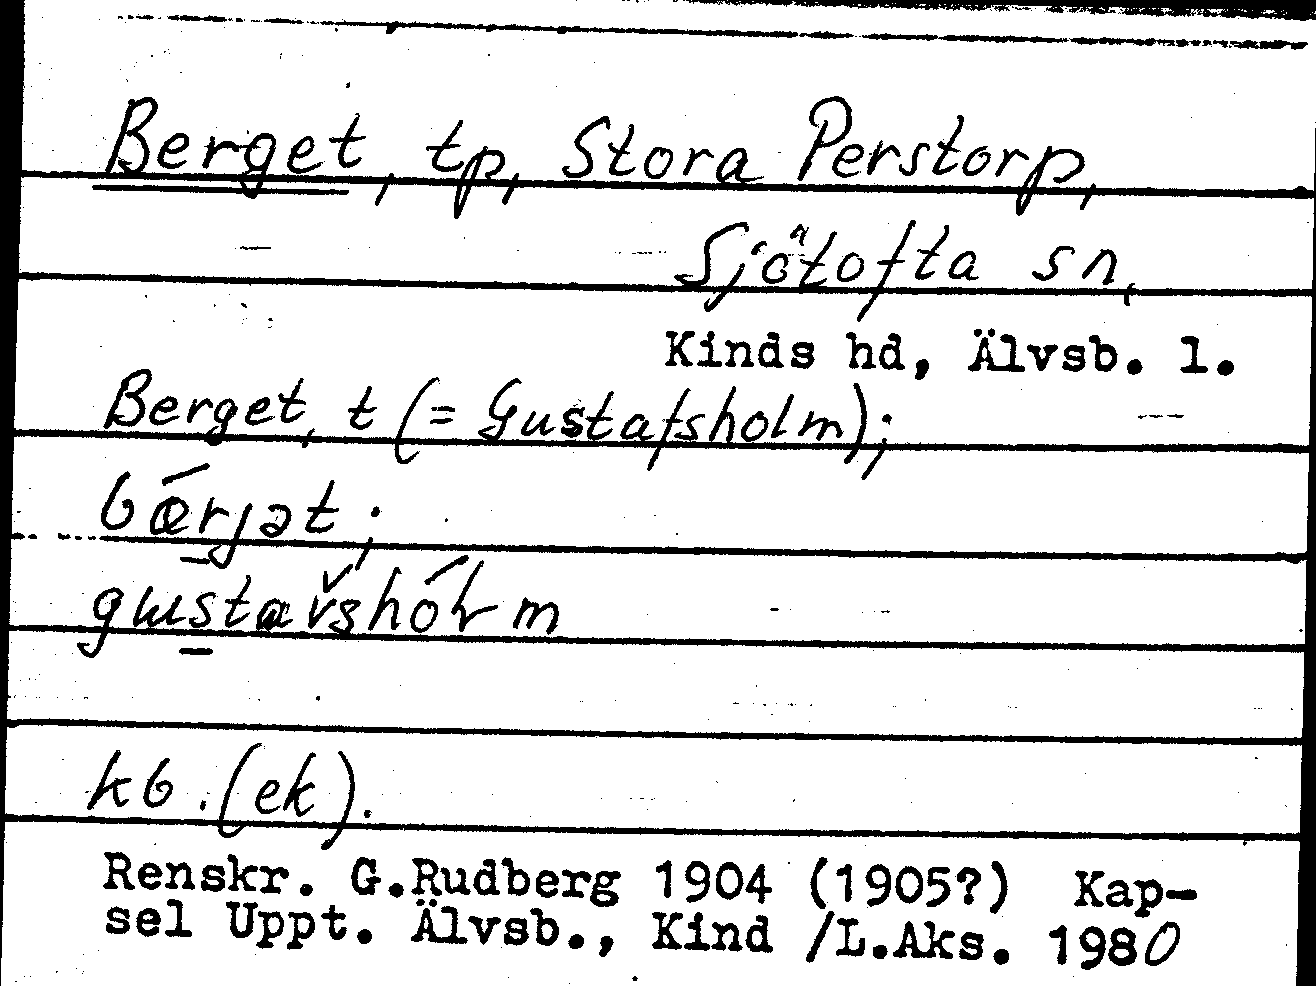 Berget, tp, Stora Perstorp,
Sjötofta sn,
Kinds hd, Älvsb. l.
Berget, t (= Gustafsholm);
bǽrjət;
gustavshóɫm
kb. (ek).
Renskr. G.Rudberg 1904 (1905?) Kap-
sel Uppt. Älvsb., Kind /L.Aks. 1980